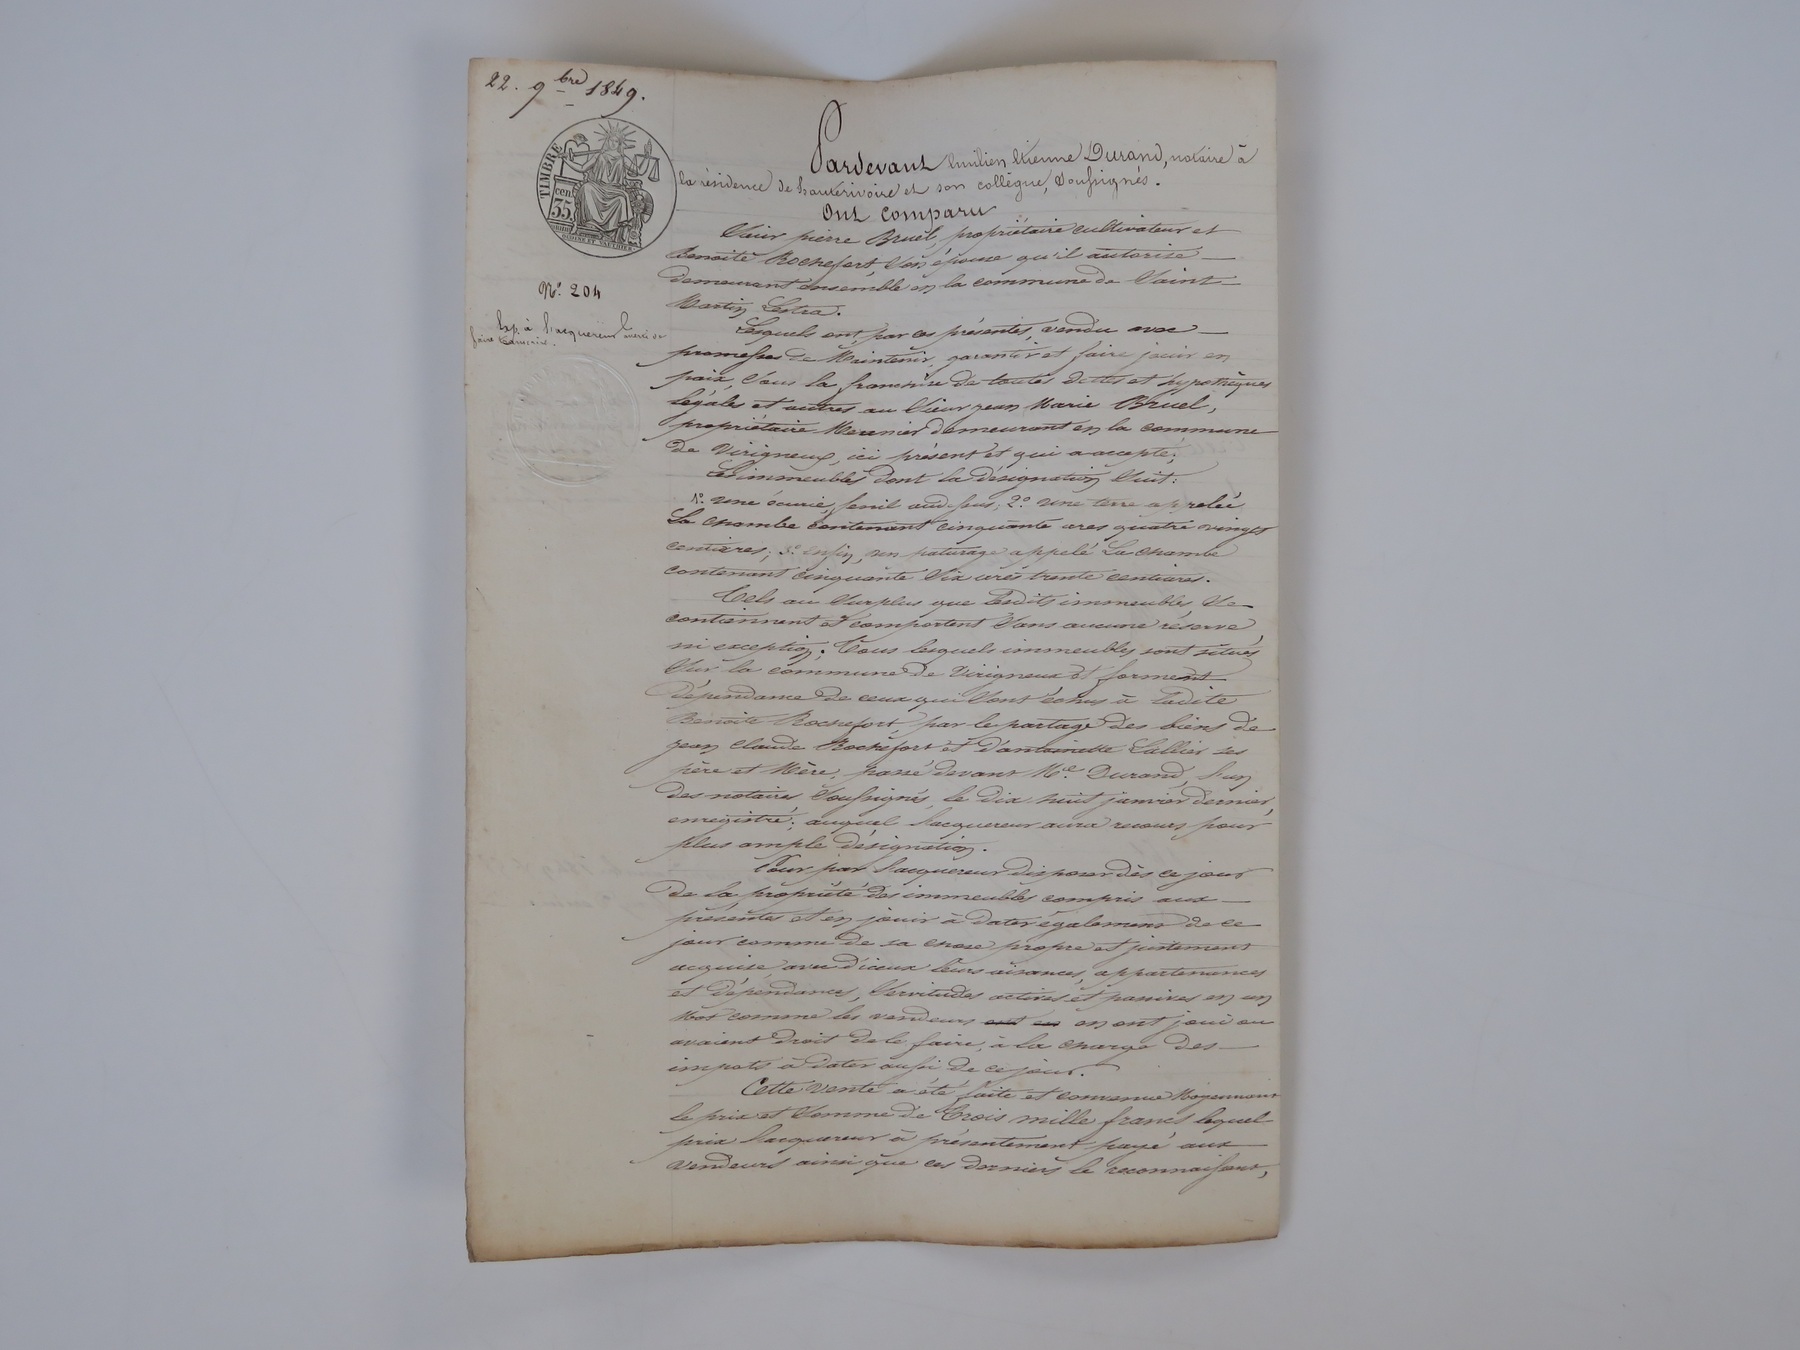 22. 9bre 1849.
TIMBRE
cent
35.
Nº. 204
Exp. à l'acquereur
faire transcrire.
Pardevant Emilien Etienne Durand, notaire à
la résidence de hauterivoire et son collègue, Soussignés.
Ont comparu
Sieur pierre Bruel, propriétaire cultivateur et
Benoite Rochefort, son épouse qu'il autorise
demeurant ensemble en la commune de Saint-
Martin Lestra.
Lesquels ont, par ces présentes, vendu avec
promesses de Maintenir, garantir et faire jouir en
paix, Sous la franchise de toutes dettes et hypothèques
légales et autres au Sieur jean Marie Bruel,
propriétaire Meunier demeurant en la commune
de Virigneux, ici présent et qui a accepté;
Les immeubles dont la désignation Suit:
1º. une écurie, fenil au dessus; 2º. une terre appelée
La chambe contenant cinquante ares quatre vingt
centiares; 3º. enfin, un paturage appelé La chambe
contenant cinquante Six ares trente centiares.
Tels au Surplus que lesdits immeubles, Se
contiennent et comportent Sans aucune réserve
ni exception. Tous lesquels immeubles sont situés
Sur la commune de Virigneux et forment
dépendance de ceux qui Sont échus à ladite
Benoite Rochefort par le partage des biens de
jean Claude Rochefort et d'antoinette Lallier ses
père et Mère, passé devant Me. Durand, l'un
des notaires Soussignés, le dix huit janvier dernier,
enregistré; auquel l'acquereur aura recours pour
plus ample désignation.
Pour par l'acquereur disposer dès ce jour
de la propriété des immeubles compris aux
présentes et en jouir à dater également de ce
jour comme de sa chose propre et justement
acquise, avec d'iceux leurs aisances, appartenances
et dépendances, Servitudes actives et passives en un
Mot comme les vendeurs ont en en ont joui ou
avaient droit de le faire, à la charge des
impots à dater aussi de ce jour.
Cette vente a été faite et convenue Moyennant
le prix et Somme de Trois mille francs lequel
prix l'acquereur à présentement payé aux
vendeurs ainsi que ces derniers le reconnaissent,